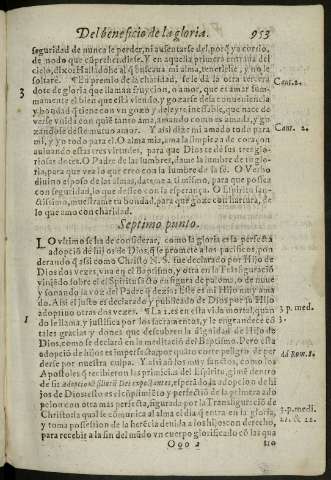 Del beneficio de la gloria. 953
seguridad de nunca le perder, ni ausentarse del, porq̃ ya corrio,
de modo que cõprehendiesse. Y en aquella primera entrada del
cielo, dixo: Halladohe al q̃ buscaua mi alma, tenerlehe, y no le
soltarè. ¶ En premio de la charidad, se le da la otra tercera
dote de gloria que llaman fruycion, o amor, que es amar sum-
mamente el bien que està viendo, y gozarse de la conueniencia
y bondad q̃ tiene con vn gozo, y alegria inestable, que nace de
verse vnido con quiẽ tanto ama, amando como es amada, y go-
zandose deste mutuo amor. Y assi dize: mi amado todo para
mi, y yo todo para el. O alma mia, ama la limpieza de coraçon
auiuando estas tres virtudes, para que Dios te dè sus tres glo-
riosas dotes. O Padre de las lumbres, dame la lumbre de tu glo-
ria, para que vea lo que creo con la lumbre de la fè. O Verbo
diuino esposo de las almas, date me a ti mismo, para que possea
con seguridad, lo que desseo con la esperança. O Espiritu san-
ctissimo, muestrame tu bondad, para que goze con hartura, de
lo que amo con charidad.
Septimo punto.
LO vltimo se ha de considerar, como la gloria es la perfecta
adopciõ de hijos de Dios, q̃ se promete a los pacificos, pon
derando q̃ assi como Christo N. S. fue declarado por Hijo de
Dios dos vezes, vna en el Baptismo, y otra en la Trãsfiguraciõ
viniẽdo sobre el el Spiritu sãcto en figura de paloma, o de nuue
y sonando la voz del Padre q̃ dezia: Este es mi Hijo muy ama
do. Assi el justo es declarado y publicado de Dios por su Hijo
adoptiuo otras dos vezes. ¶ La 1. es en esta vida mortal, quan
do le llama, y justifica por los sacramentos, y le engrandece cõ
tales gracias y dones que descubren la dignidad de Hijo de
Dios, como se declarò en la meditaciõ del Baptismo. Pero esta
adopciõ de hijos es imperfecta, por quãto corre peligro de per
derse por nuestra culpa. Y assi a los muy justos, como los
Apostoles q̃ recibieron las primicias del Espiritu, gimẽ dentro
de si: adoptionẽ filiorũ Dei expectantes, esperãdo la adopcion de hi
jos de Dios: esto es el cũplimiẽto y perfecciõ de la primera ado
pcion con otra mas perfecta, figurada por la Transfiguraciõ de
Christo: la qual se comunica al alma el dia q̃ entra en la gloria,
y toma possession de la herẽcia deuida a los hijos con derecho,
para recebir a la fin del mũdo vn cuerpo glorificado cõ las qua
Ooo 2
tro
3
Cant. 2.
Cant. 2.
1
3 p. med.
3.
Ad Rom. 8.
3. p. medi.
21. & 22.